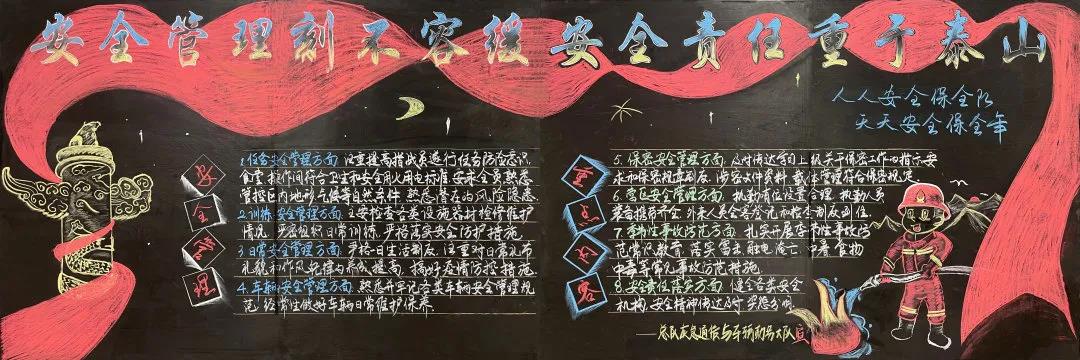 安全管理刻不容缓 安全责任重于泰山
人人安全保全队
天天安全保全年
安全管理
1.任务安全管理方面 注重提高指战员遂行任务防险意识
食堂操作间符合卫生和安全用火用电标准 安全员熟悉
管控区内地形气候等自然条件 熟悉潜在的风险隐患
2.训练安全管理方面 主要检查各类设施器材检修维护
情况 严密组织日常训练 严格落实安全防护措施
3.日常安全管理方面 严格日生活制度 注重对日常礼节
礼貌和作风纪律 提高 搞好疫情防控措施
4.车辆安全管理方面 熟悉并牢记各类车辆安全管理规
范 经常性做好车辆日常维护保养
重点内容
5.保密安全管理方面 及时传达学习上级关于保密工作的指示要
求和保密规章制度 涉密文件资料 载体管理符合保密规定
6.营区安全管理方面 执勤岗位设置合理 执勤人员
装备携带齐全 外来人员会客登记和检查制度到位
7.季节性事故防范方面 扎实开展季节性事故防
范常识教育 落实雷击 触电 淹亡 中暑 食物
中毒等常见事故防范措施
8.安全责任落实方面 健全各类安全
机构 安全精神传达及时 实
——总队应急通信与车辆勤务大队 宣